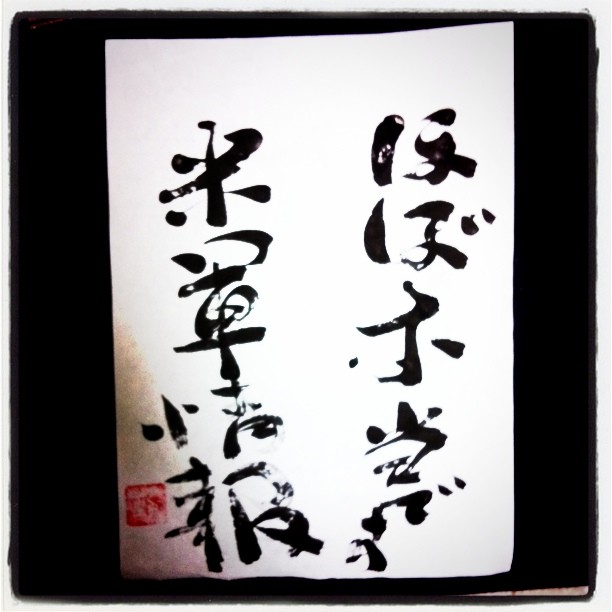 ほぼ本当です
米軍情報